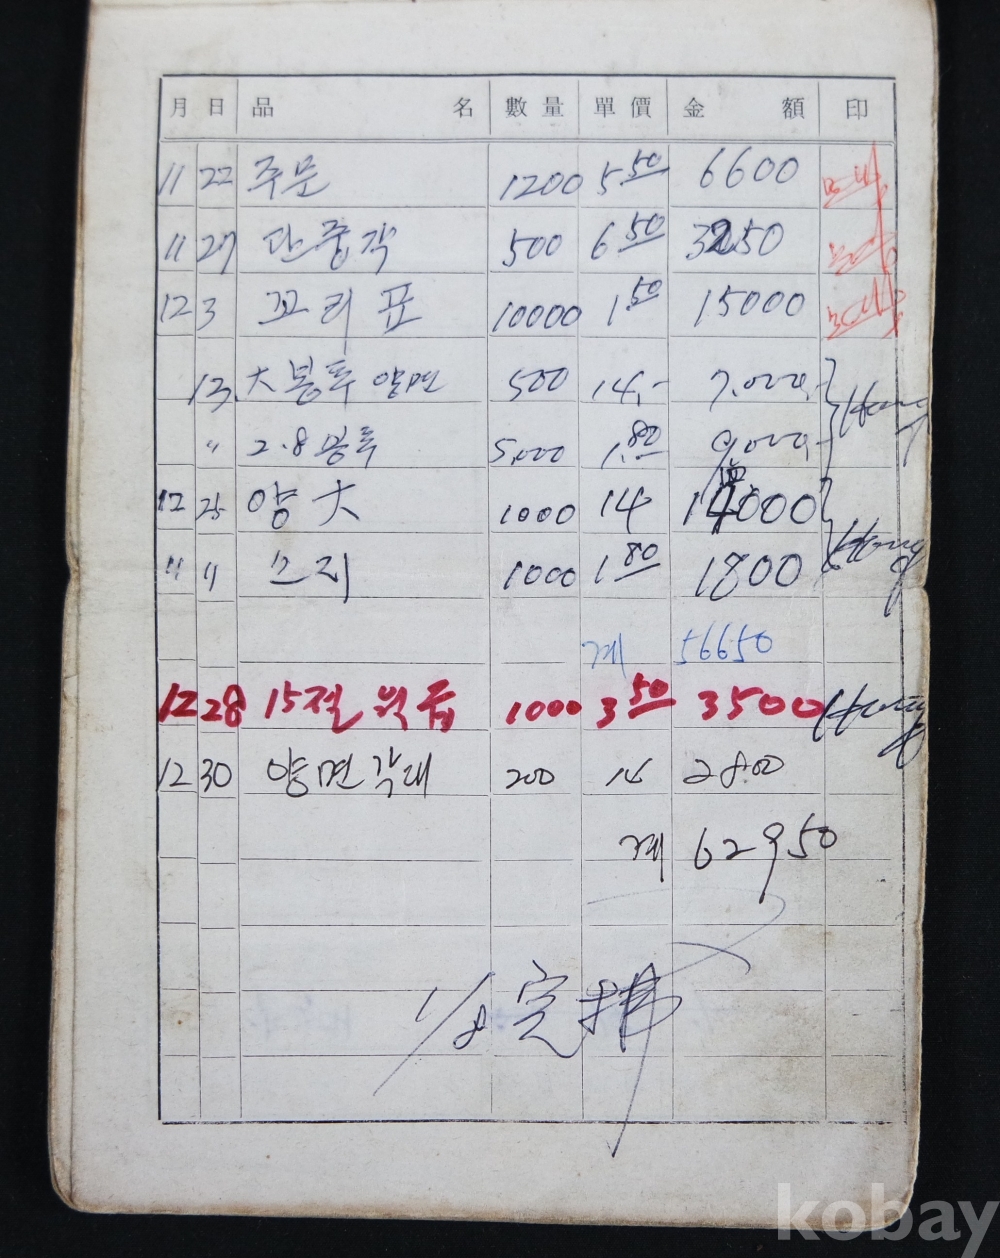 月 日 品 名 數量 單價 金 額 印
11 22 주문 1200 5 50 6600
11 27 단중각 500 6 50 3250
12 3 꼬리표 10000 1 50 15000
13 大봉투 양면 500 14.- 7.000
〃 2.8봉투 5,000 1.80 9.000
12 25 양大 1000 14 14000
〃 〃 1000 1 80 1800
계 56650
12 28 15절 1000 3 50 3500
12 30 양면각대 200 14 2800
계 62950
1/8 完拂
kobay